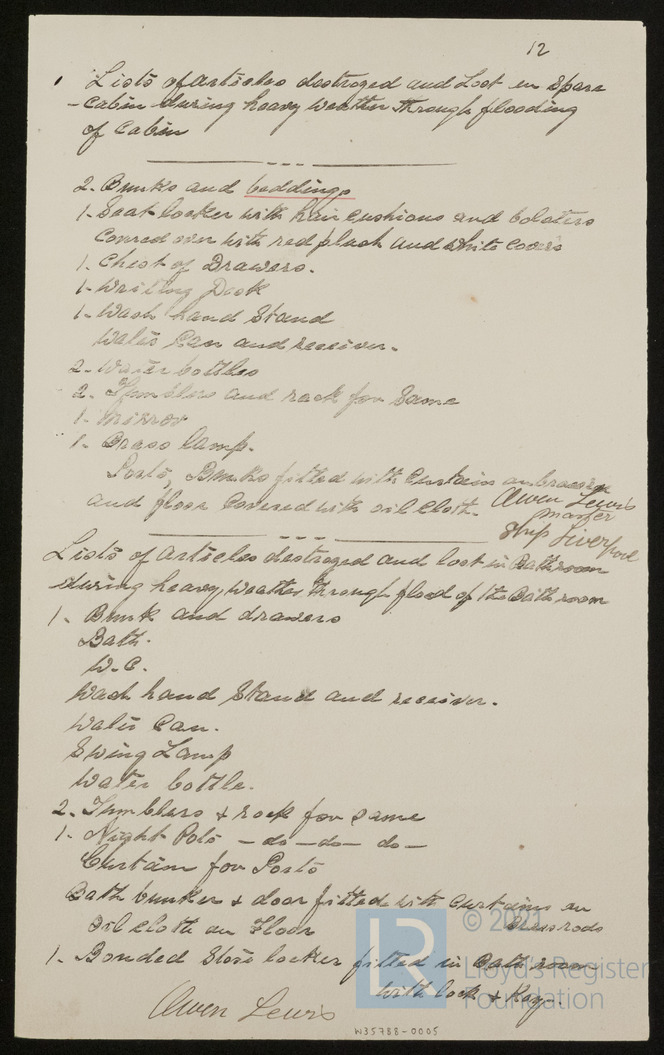 12
Lists of articles destroyed and Lost in Spare
-Cabin during heavy weather through flooding
of Cabin
2- Bunks and beddings
1- Seat locker with hair cushions and bolsters
Covred over with red plush and white covers
1. Chest of Drawers.
1- Writing Desk
1- Wash hand Stand
Water Can and receiver.
2- Water bottles
2- Tumblers and rack for Same
1- Mirror
1- Brass lamp.
Ports, Bunks fitted with Curtains on brass
and floor Covered with oil cloth.
Owen Lewis
Master
Ship Liverpool
Lists of articles destroyed and lost in Bathroom
during heavy weather through flood of the Bath room
1- Bunk and drawers
Bath.
W.C.
Wash hand Stand and receiver.
Water Can.
Swing Lamp
Water bottle.
2- Tumblers & rock for same
1- Night Pots - do - do - do -
Curtain for Ports
Bath bunker & door fitted with Curtains on
Brass rods
Oil cloth on Floor
1- Bonded Store locker fitted in Bath room
with lock & Key.
Owen Lewis
W35788-0005
LR
© 2021
Lloyd's Register
Foundation